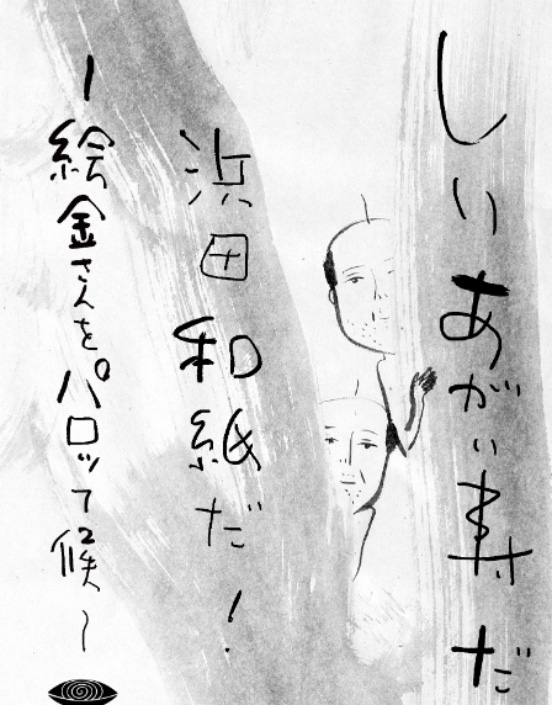 しりあがり寿だ
浜田和紙だ!
~絵金さんをパロッて候~